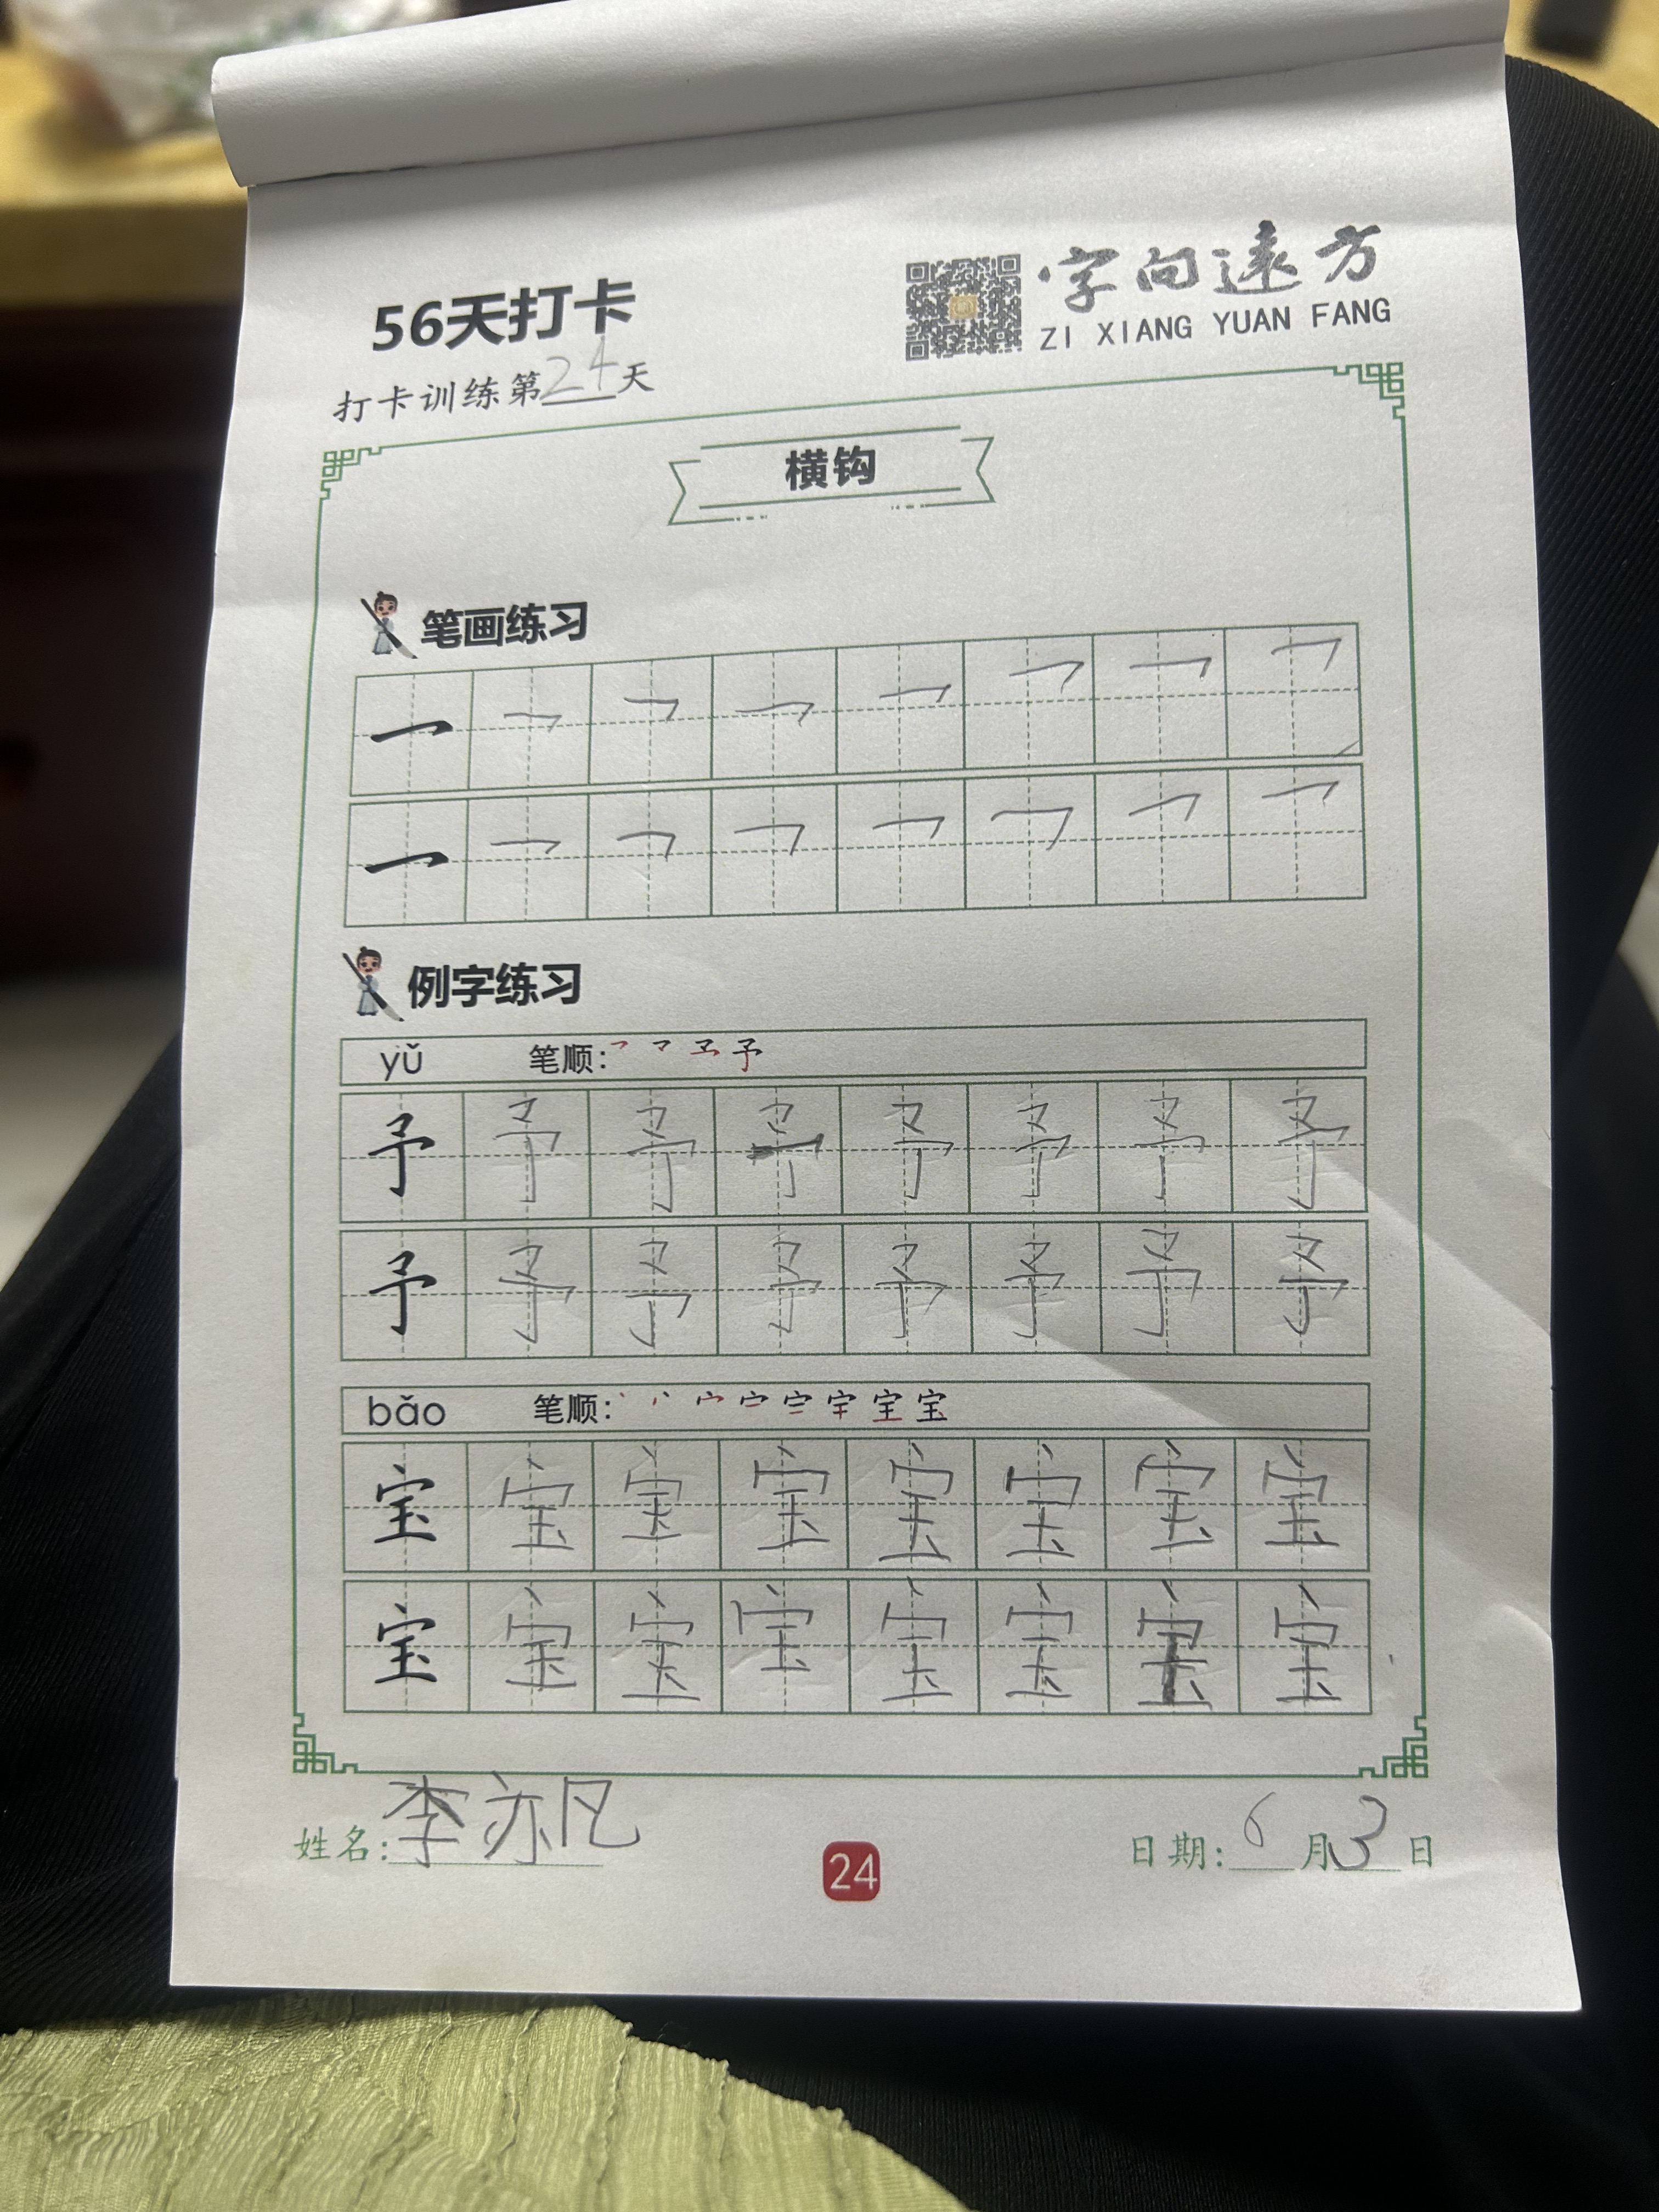 56天打卡
字向遠方
ZI XIANG YUAN FANG
打卡训练第24天
横钩
笔画练习
例字练习
yǔ 笔顺:
予 予 予 予 予 予 予 予
予 予 予 予 予 予 予 予
bǎo 笔顺:
宝 宝 宝 宝 宝 宝 宝 宝
宝 宝 宝 宝 宝 宝 宝 宝
姓名:李亦凡
24
日期:6月3日